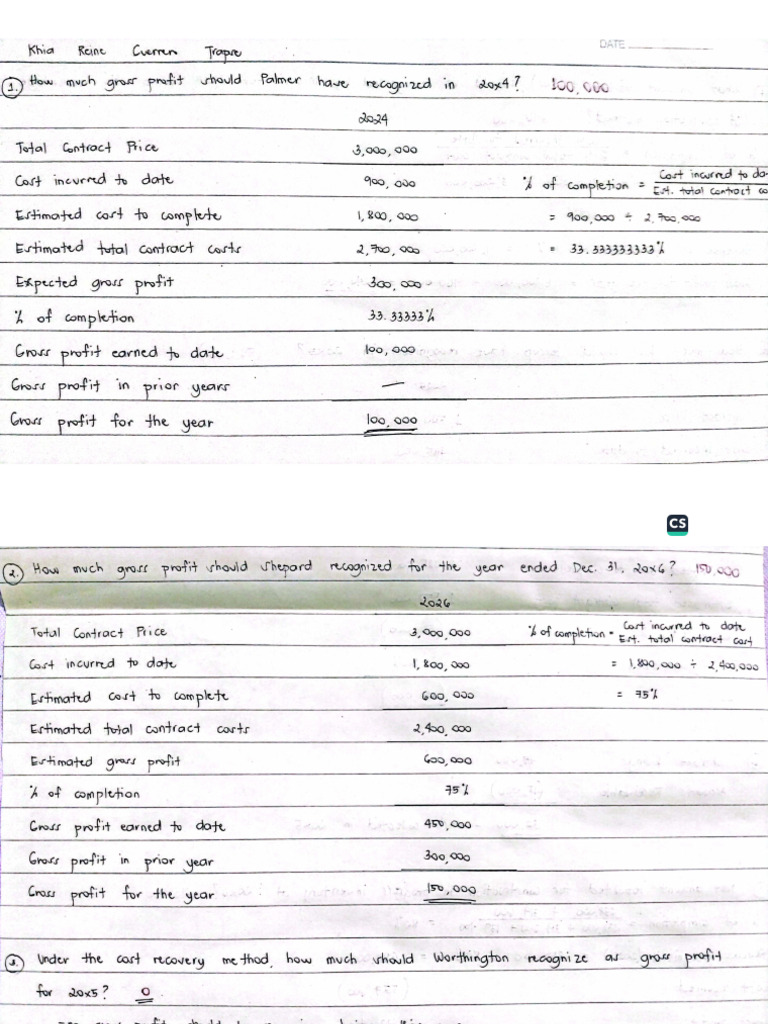 Khia Reine Guerrero Trapse
DATE
1. How much gross profit should Palmer have recognized in 20x4? 100,000
2024
Total Contract Price 3,000,000
Cost incurred to date 900,000 % of completion = Cost incurred to da
Est. total contract co
Estimated cost to complete 1,800,000 = 900,000 ÷ 2,700,000
Estimated total contract costs 2,700,000 = 33.333333333%
Expected gross profit 300,000
% of completion 33.33333%
Gross profit earned to date 100,000
Gross profit in prior years —
Gross profit for the year 100,000
CS
2. How much gross profit should Shepard recognized for the year ended Dec. 31, 20x6? 150,000
2026
Total Contract Price 3,000,000 % of completion = Cost incurred to date
Est. total contract cost
Cost incurred to date 1,800,000 = 1,800,000 ÷ 2,400,000
Estimated cost to complete 600,000 = 75%
Estimated total contract costs 2,400,000
Estimated gross profit 600,000
% of completion 75%
Gross profit earned to date 450,000
Gross profit in prior year 300,000
Gross profit for the year 150,000
3. Under the cost recovery method, how much should Worthington recognize as gross profit
for 20x5? 0